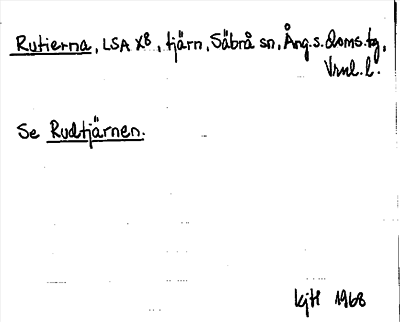 Rutierna, LSA X8, tjärn, Säbrå sn, Ång.s.doms.tg,
Vrnl. l.
Se Rudtjärnen.
kjH 1968